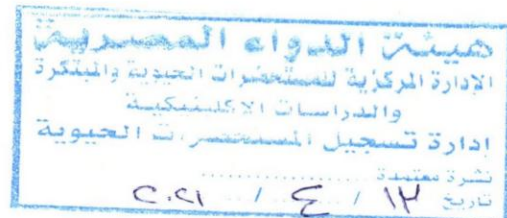 هيئة الدواء المصرية
الإدارة المركزية للمستحضرات الحيوية والمبتكرة
والدراسات الاكلينيكية
إدارة تسجيل المستحضرات الحيوية
نشرة معتمدة ..................
تاريخ ١٣ / ٤ / ٢٠٢١